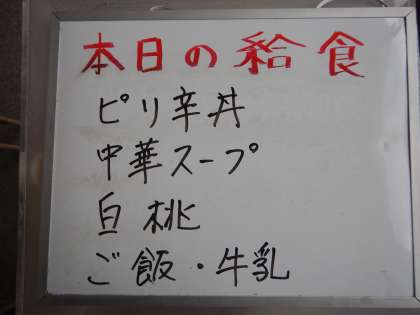 本日の給食
ピリ辛丼
中華スープ
白桃
ご飯・牛乳